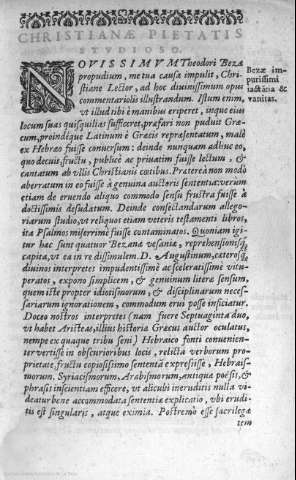 CHRISTIANÆ PIETATIS
STVDIOSO.
NOVISSIMVM Theodori Bezæ
propudium, me tua causa impulit, Chri-
stiane Lector, ad hoc diuinissimum opus
commentariolis illustrandum. Istum enim,
vt illud tibi è manibus eriperet, inque eius
locum suas quisquilias sufficeret, præfari non puduit Græ-
cum, proindéque Latinum è Græcis repræsentatum, malè
ex Hebræo fuisse conuersum: deinde nunquam adhuc eo,
quo decuit, fructu, publicè ac priuatim fuisse lectum, &
cantatum ab vllis Christianis cœtibus. Præterea non modò
aberratum in eo fuisse à genuina auctoris sententia: verum
etiam de eruendo aliquo commodo sensu frustra fuisse à
doctissimis desudatum. Deinde consectandarum allego-
riarum studio, vt reliquos etiam veteris testamenti libros,
ita Psalmos miserrimè fuisse contaminatos. Quoniam igi-
tur hæc sunt quatuor Bezanæ vesaniæ, reprehensionisq́;
capita, vt ea in re dissimulem D. Augustinum, cæterosq́;
diuinos interpretes impudentissimè ac sceleratissimè vitu-
peratos, expono simplicem, & geniunum literæ sensum,
quem iste propter idiotismorum, & disciplinarum neces-
sariarum ignorationem, commodum erui posse inficiatur.
Doceo nostros interpretes (nam fuere Septuaginta duo,
vt habet Aristeas, illius historiæ Græcus auctor oculatus,
nempe ex quaque tribu seni) Hebraico fonti conuenien-
ter vertisse in obscurioribus locis, relicta verborum pro-
prietate fructu copiosissimo sententiā expressisse, Hebrais-
morum, Syriacismorum, Arabismorum, antiquæ poësis, &
phrasis inscientiam efficere, vt alicubi ineruditis nulla vi-
deatur bene accommodata sententiæ explicatio, vbi erudi-
tis est singularis, atque eximia. Postremò esse sacrilega
item
Bezæ im-
purissimi
iactātia &
vanitas.